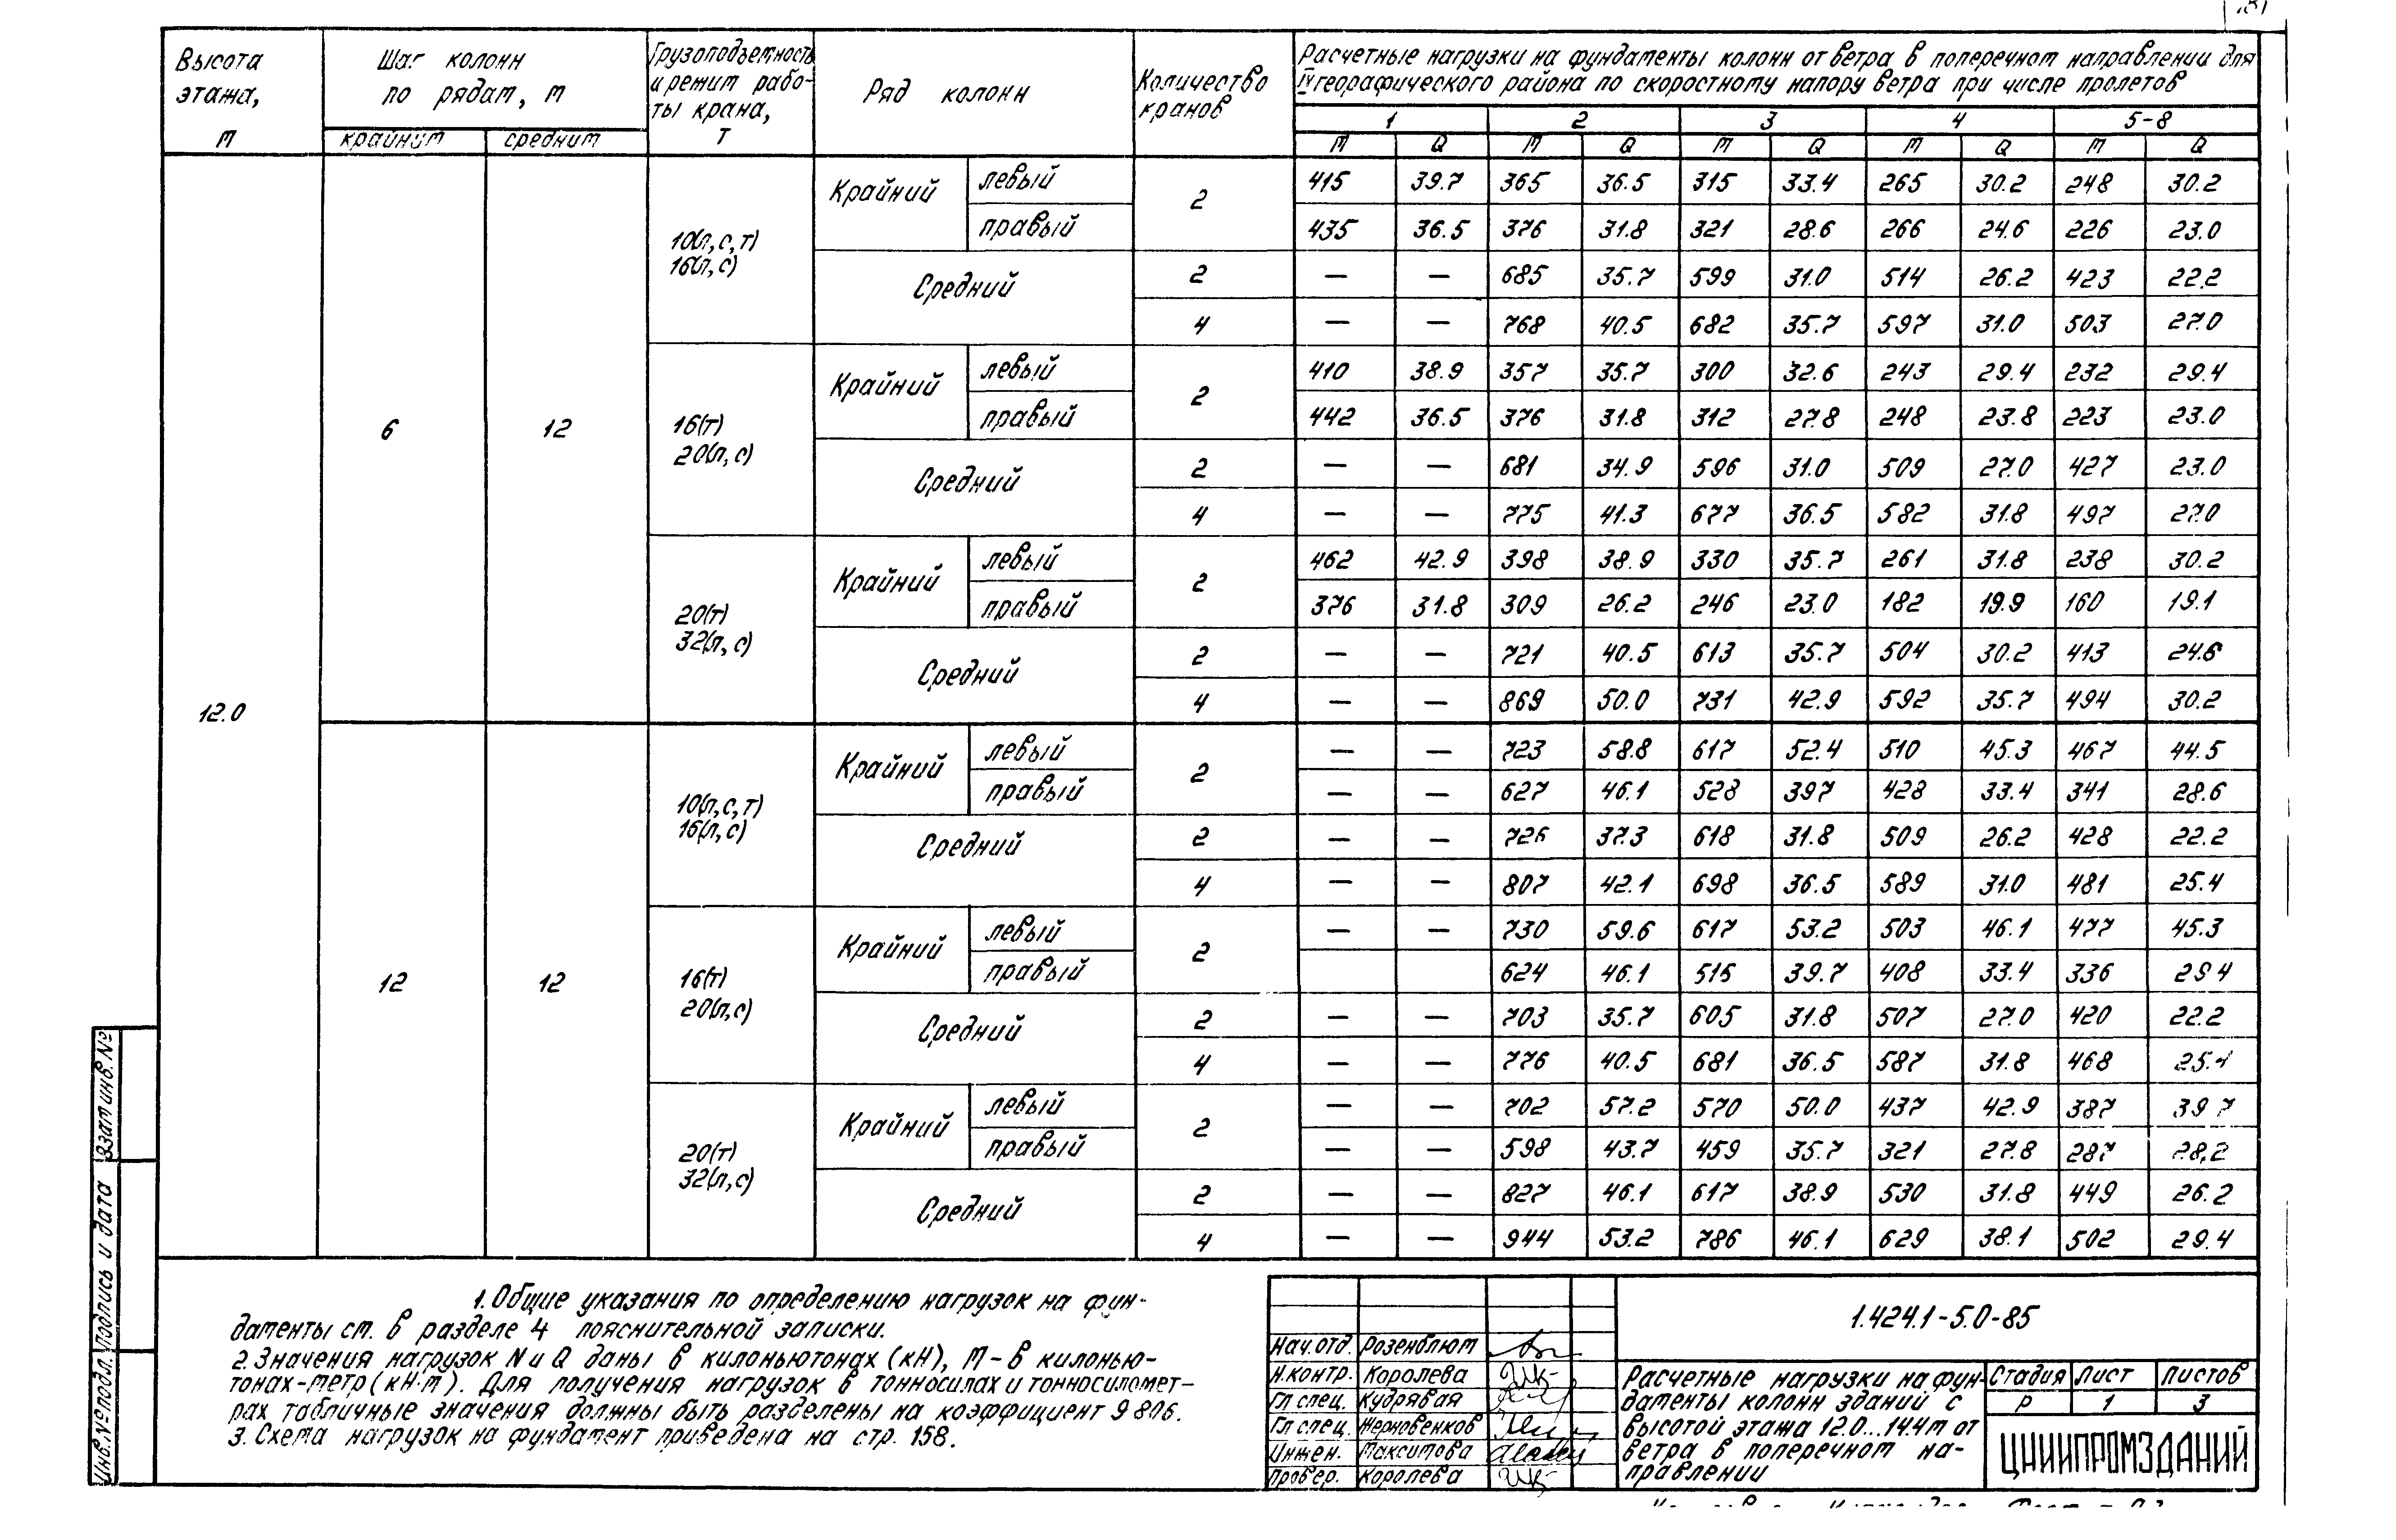 Высота этажа, м
Шаг колонн по рядам, м
крайним
средним
Грузоподъемность и режим работы крана, т
Ряд колонн
Количество кранов
Расчетные нагрузки на фундаменты колонн от ветра в поперечном направлении для
IV географического района по скоростному напору ветра при числе пролетов
1 2 3 4 5-8
M Q M Q M Q M Q M Q
12.0
6 12
10(л,с,т)
16(л,с)
Крайний левый 2 415 39.7 365 36.5 315 33.4 265 30.2 248 30.2
правый 435 36.5 376 31.8 321 28.6 266 24.6 226 23.0
Средний 2 — — 685 35.7 599 31.0 514 26.2 423 22.2
4 — — 768 40.5 682 35.7 597 31.0 503 27.0
16(т)
20(л,с)
Крайний левый 2 410 38.9 357 35.7 300 32.6 243 29.4 232 29.4
правый 442 36.5 376 31.8 312 27.8 248 23.8 223 23.0
Средний 2 — — 681 34.9 596 31.0 509 27.0 427 23.0
4 — — 775 41.3 677 36.5 582 31.8 497 27.0
20(т)
32(л,с)
Крайний левый 2 462 42.9 398 38.9 330 35.7 261 31.8 238 30.2
правый 376 31.8 309 26.2 246 23.0 182 19.9 160 19.1
Средний 2 — — 721 40.5 613 35.7 504 30.2 413 24.6
4 — — 869 50.0 731 42.9 592 35.7 494 30.2
12 12
10(л,с,т)
16(л,с)
Крайний левый 2 — — 723 58.8 617 52.4 510 45.3 467 44.5
правый — — 627 46.1 528 397 428 33.4 341 28.6
Средний 2 — — 726 37.3 618 31.8 509 26.2 428 22.2
4 — — 807 42.1 698 36.5 589 31.0 481 25.4
16(т)
20(л,с)
Крайний левый 2 — — 730 59.6 617 53.2 503 46.1 477 45.3
правый 624 46.1 516 39.7 408 33.4 336 29 4
Средний 2 — — 703 35.7 605 31.8 507 27.0 420 22.2
4 — — 776 40.5 681 36.5 587 31.8 468 25.4
20(т)
32(л,с)
Крайний левый 2 — — 702 57.2 570 50.0 437 42.9 387 39 7
правый — — 598 43.7 459 35.7 321 27.8 287 28,2
Средний 2 — — 827 46.1 617 38.9 530 31.8 449 26.2
4 — — 944 53.2 786 46.1 629 38.1 502 29.4
1. Общие указания по определению нагрузок на фун-
даменты см. в разделе 4 пояснительной записки.
2. Значения нагрузок N и Q даны в килоньютонах (кН), М – в килонью-
тонах-метр (кН·м). Для получения нагрузок в тонносилах и тонносиломет-
рах табличные значения должны быть разделены на коэффициент 9 806.
3. Схема нагрузок на фундамент приведена на стр. 158.
Нач. отд. Розенблюм
Н. контр. Королева
Гл спец. Кудрявая
Гл спец. Жерновенков
Инжен. Максимова
Провер. Королева
1.424.1-5.0-85
Расчетные нагрузки на фун-
даменты колонн зданий с
высотой этажа 12.0...14.4м от
ветра в поперечном на-
правлении
Стадия Лист Листов
Р 1 3
ЦНИИПРОМЗДАНИЙ
Взам инв. №
Подпись и дата
Инв. № подл.